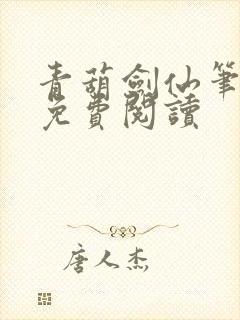 青葫劍仙筆
免費閱讀
唐人杰